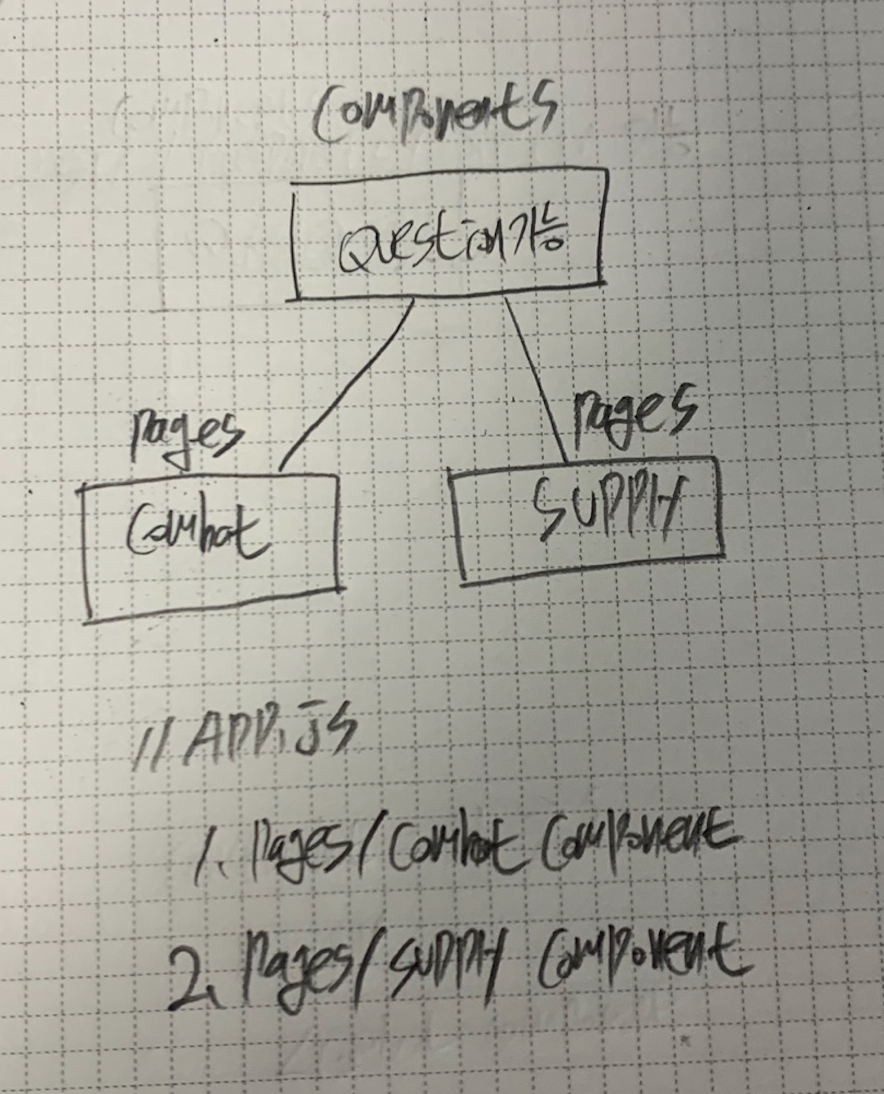 Components
Question가능
Pages
Pages
Combat
SUPPLY
// APP.JS
1. Pages/Combat Component
2. Pages/SUPPLY Component